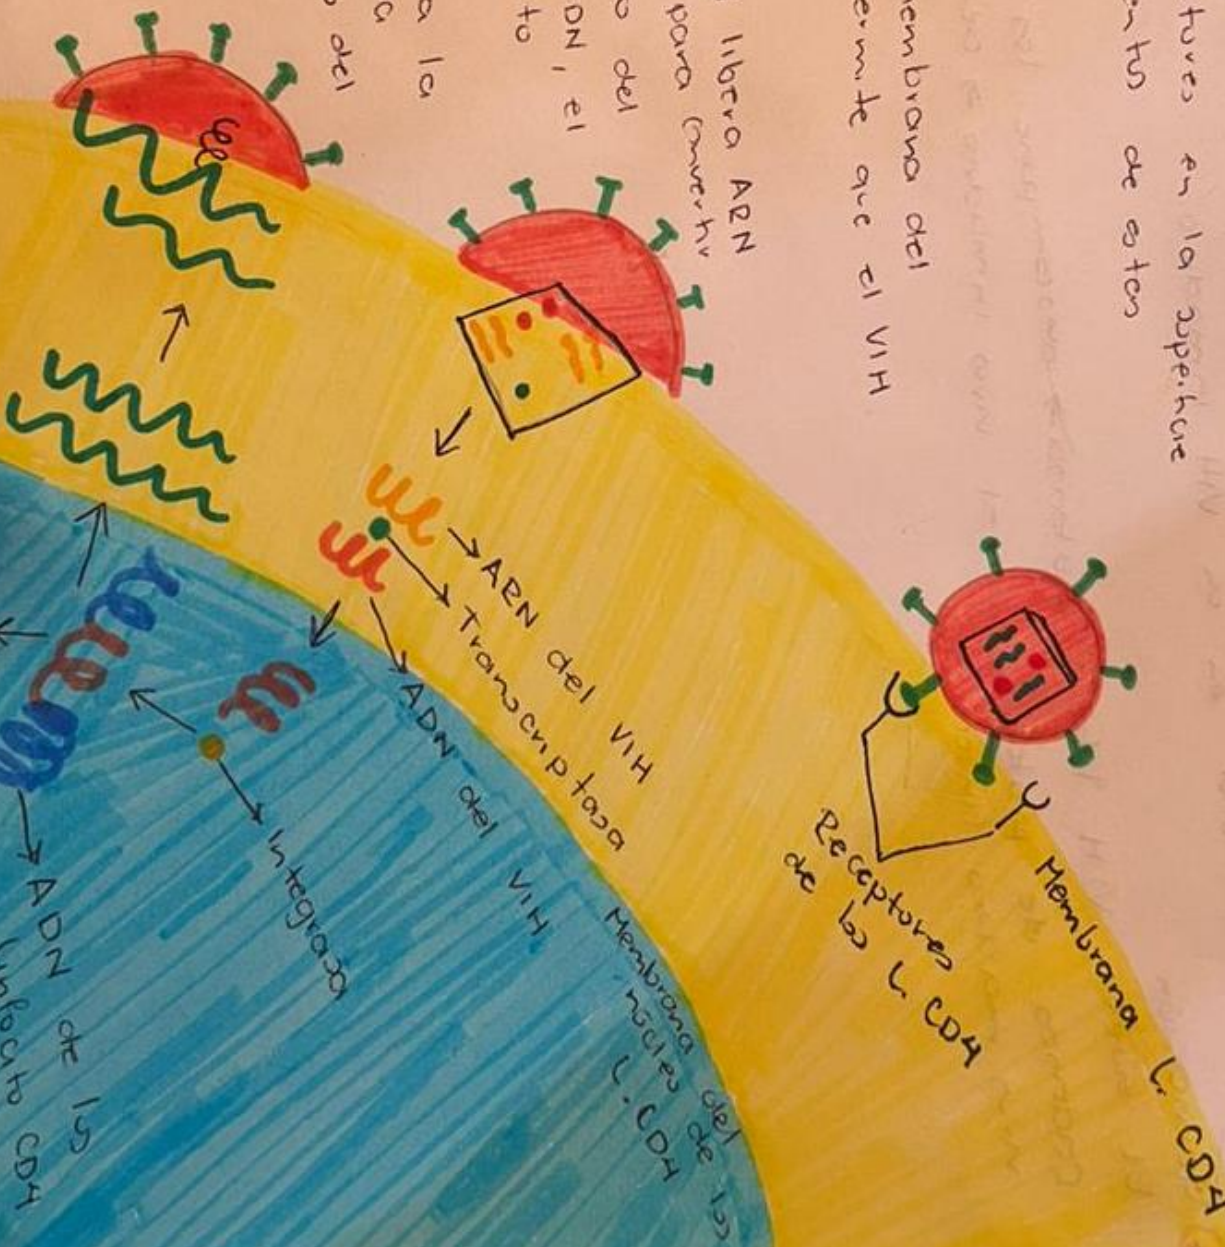 tures en la superficie
entos de estos
embrana del
ermite que el VIH
libera ARN
para convertir
o del
DN, el
to
a la
a
o del
Membrana L. CD4
Receptores
de los L. CD4
ARN del VIH
Transcriptasa
ADN del VIH
Membrana del
núcleo de los
L. CD4
Integrasa
ADN de ls
infocito CD4